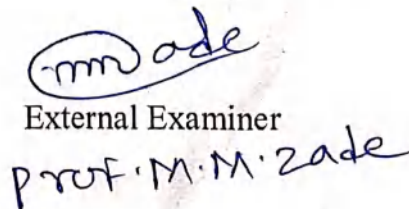 mmade
External Examiner
prof. M.M. zade